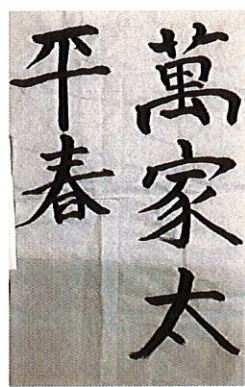 萬家太
平春